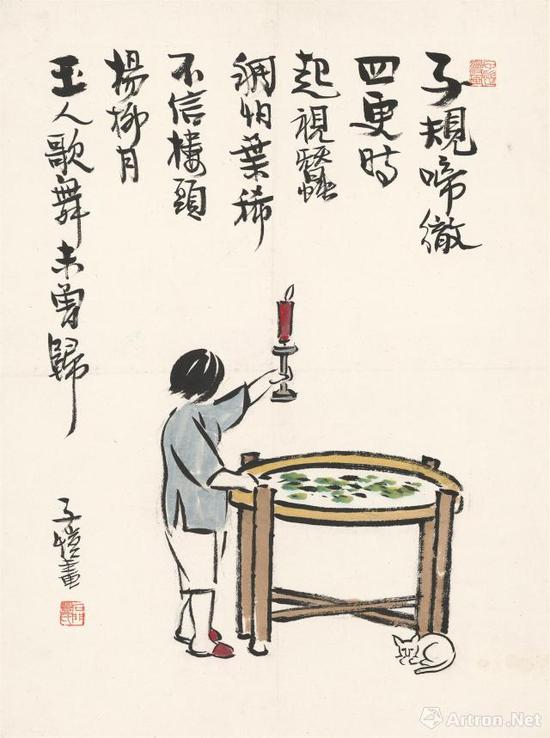 子規啼徹
四更時
起視蠶
稠怕葉稀
不信樓頭
楊柳月
玉人歌舞未曾歸
子愷畫
Artron.Net